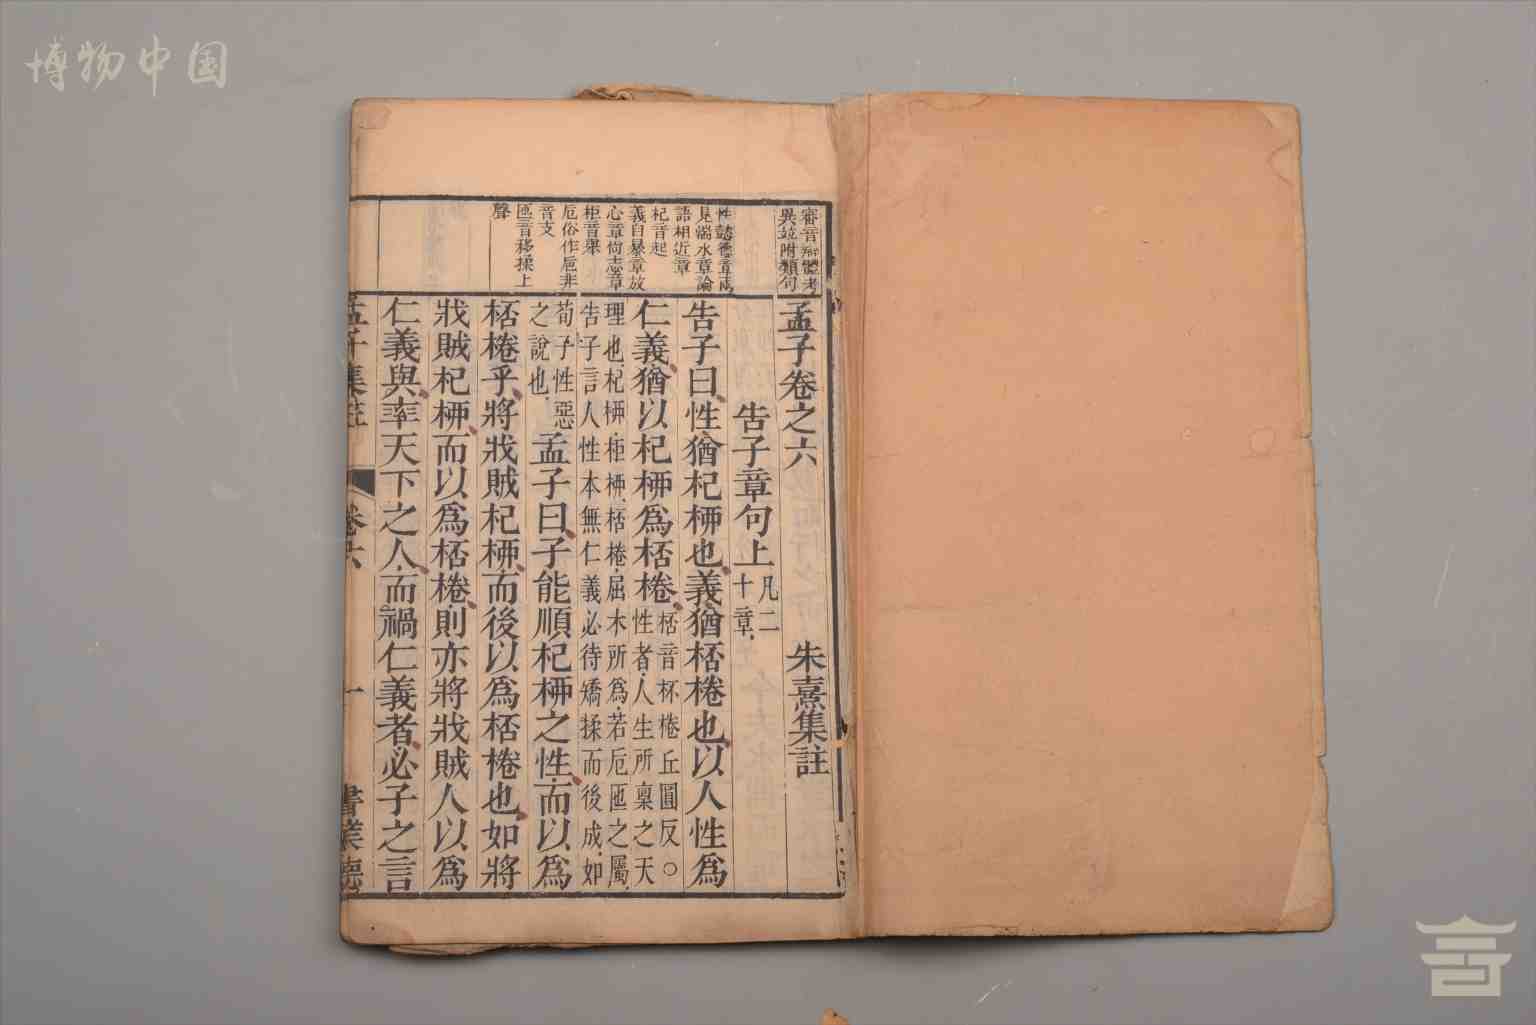 博物中国
審音辯體考
異竝附類句
性惡養章丙
見湍水章論
語相近章
杞音起
義自暴章放
心章尚志章
柜音舉
巵俗作巵非
音支
匜音移揉上
聲
孟子卷之六　朱熹集註
告子章句上凡二
十章
告子曰性猶杞柳也義猶桮棬也以人性爲
仁義猶以杞柳爲桮棬桮音杯棬丘圓反○
性者人生所稟之天
理也杞柳柜柳桮棬屈木所爲若巵匜之屬
告子言人性本無仁義必待矯揉而後成如
荀子性惡
之說也
孟子曰子能順杞柳之性而以爲
桮棬乎將戕賊杞柳而後以爲桮棬也如將
戕賊杞柳而以爲桮棬則亦將戕賊人以爲
仁義與率天下之人而禍仁義者必子之言
孟子集註　卷六　一　書業德